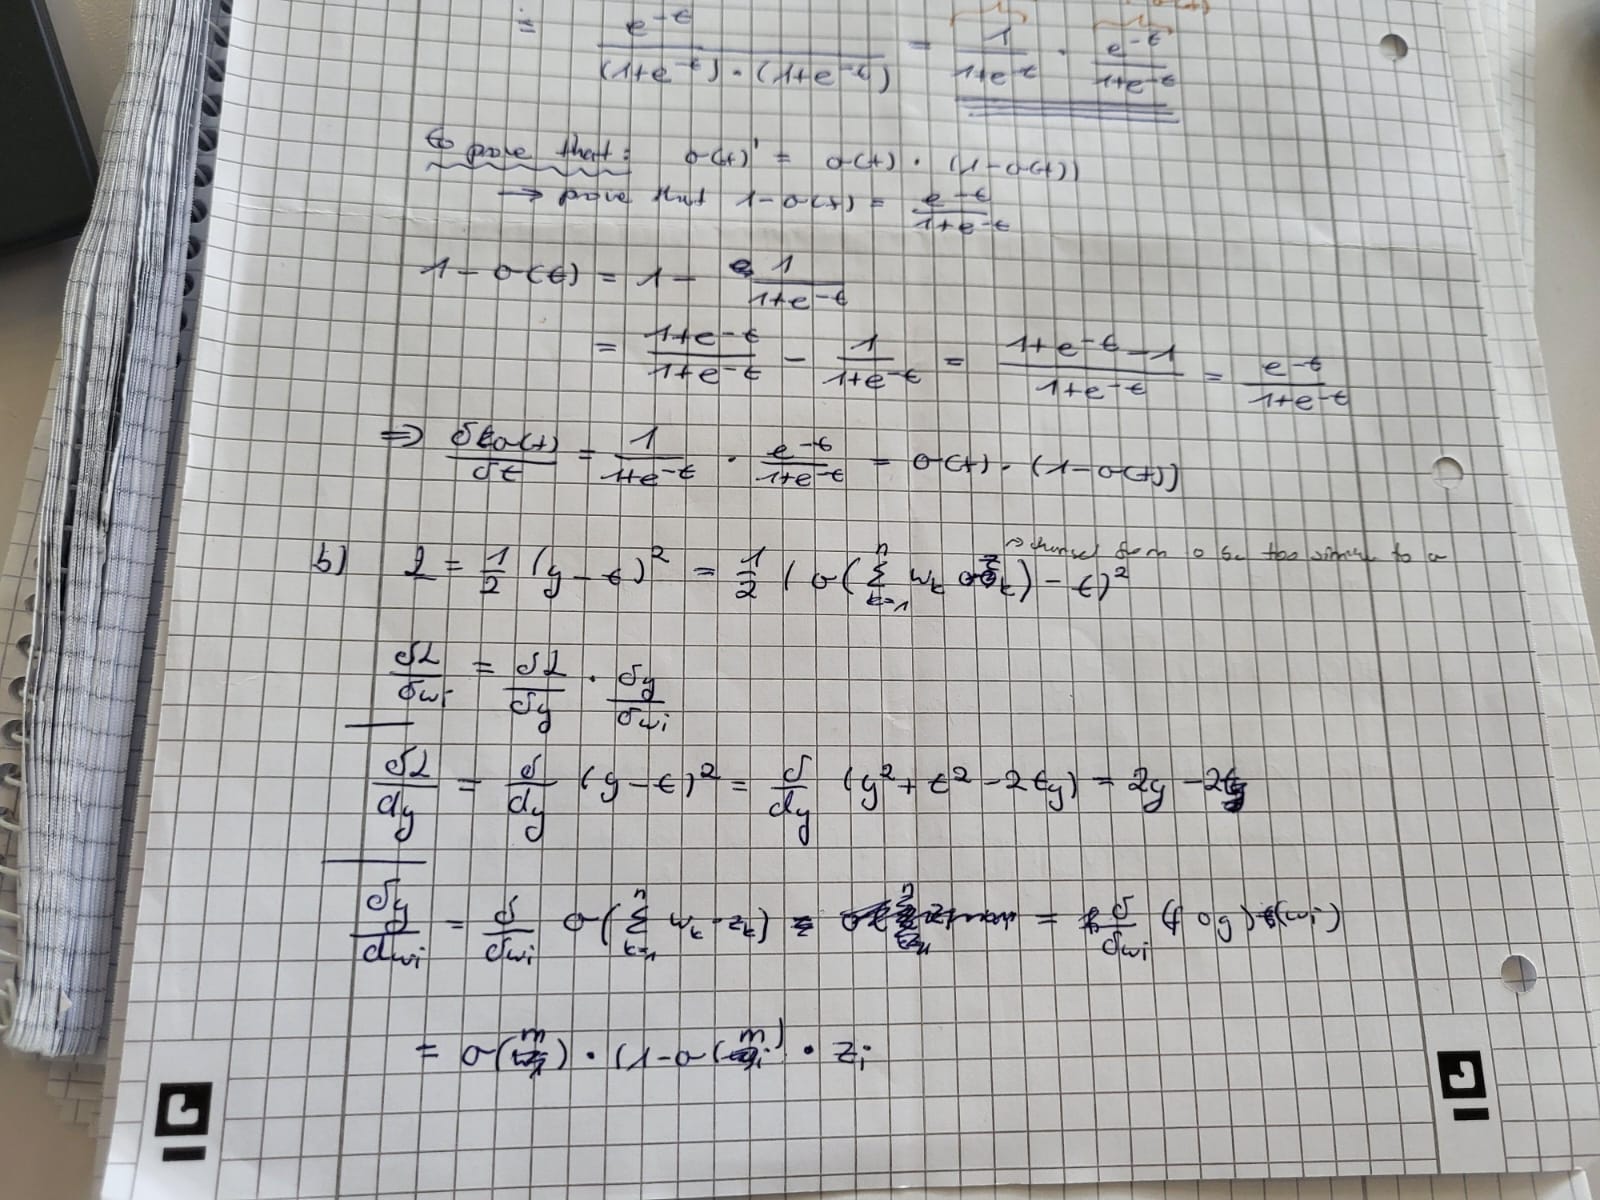 = e^-t / ((1+e^-t) · (1+e^-t)) = 1/(1+e^-t) · e^-t/(1+e^-t)
prove that: σ(t)' = σ(t) · (1-σ(t))
→ prove that 1-σ(t) = e^-t/(1+e^-t)
1 - σ(t) = 1 - 1/(1+e^-t)
= (1+e^-t)/(1+e^-t) - 1/(1+e^-t) = (1+e^-t-1)/(1+e^-t) = e^-t/(1+e^-t)
⇒ δσ(t)/δt = 1/(1+e^-t) · e^-t/(1+e^-t) = σ(t) · (1-σ(t))
→ from o too similar to σ
b) L = 1/2 (y-t)² = 1/2 (σ(Σ_{k=1}^n w_k z_k) - t)²
δL/δw_i = δL/δy · δy/δw_i
δL/dy = δ/dy (y-t)² = δ/dy (y²+t²-2ty) = 2y-2t
δy/dw_i = δ/δw_i σ(Σ_{k=1}^n w_k · z_k) = = δ/δw_i (f∘g)(w_i)
= σ(m) · (1-σ(m)) · z_i